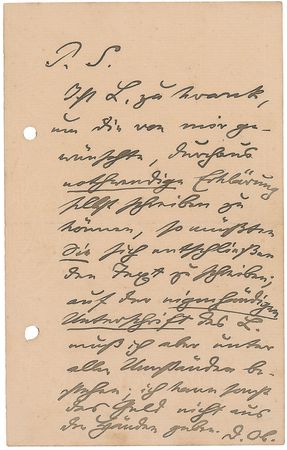 P. S.
Ist L. zu krank,
um die von mir ge-
wünschte, durchaus
nothwendige Erklärung
selbst schreiben zu
können, so müßten
Sie sich entschließen
den Text zu schreiben;
auf der eigenhändigen
Unterschrift des L.
muß ich aber unter
allen Umständen be-
stehen; ich kann sonst
das Geld nicht aus
den Händen geben. D. Ob.